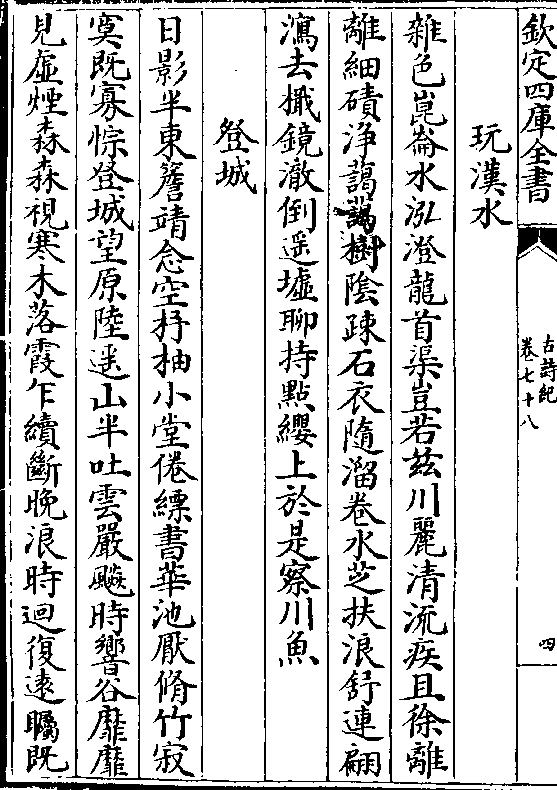 欽定四庫全書
古詩紀
卷七十八
四
玩漢水
雜色崑崙水泓澄龍首渠豈若茲川麗清流疾且徐離
離細磧淨藹藹樹陰疎石衣隨溜卷水芝扶浪舒連翩
瀉去檝鏡澈倒遥墟聊持點纓上於是察川魚
登城
日影半東簷靖念空杼柚小堂倦縹書華池厭脩竹寂
寞既寡悰登城望原陸遥山半吐雲嚴飈時響谷靡靡
見虛煙森森視寒木落霞乍續斷晚浪時迴復遠矚既